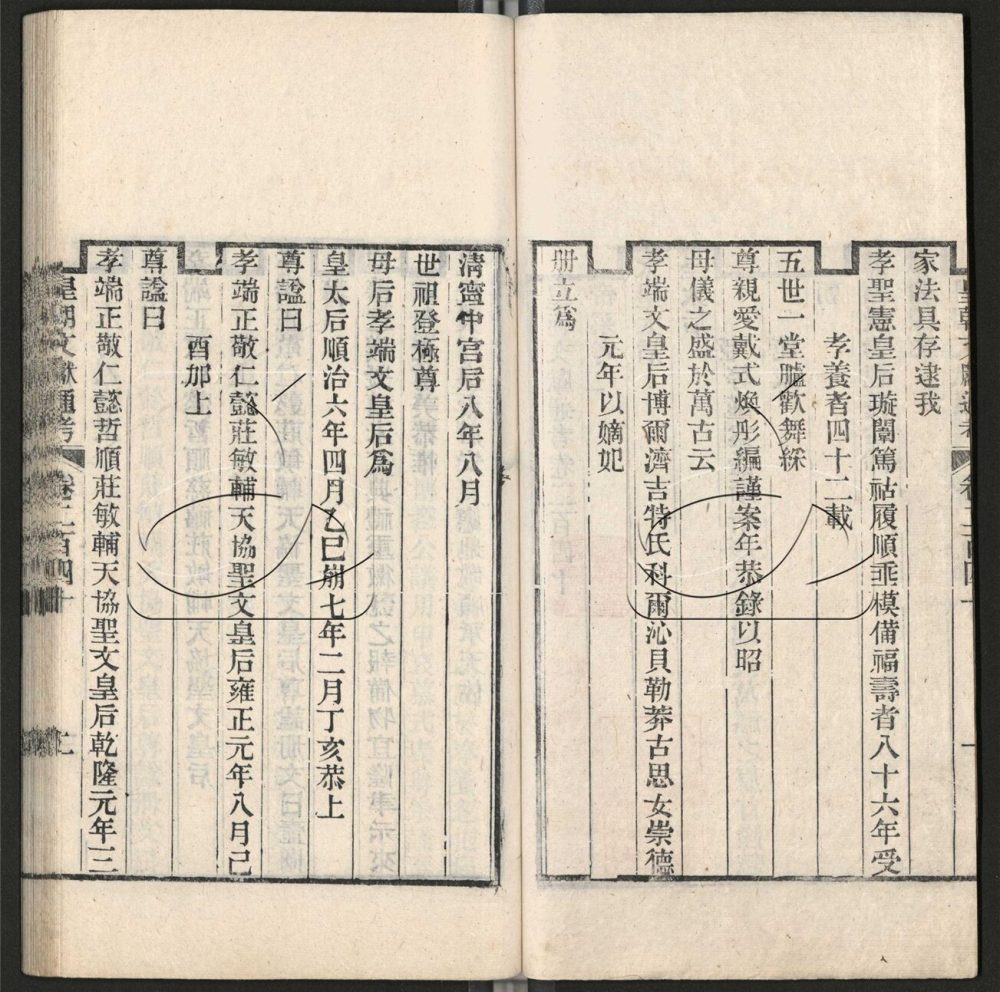 家法具存逮我
孝聖憲皇后璇闈篤祜履順垂模備福壽者八十六年受
孝養者四十二載
五世一堂臚歡舞綵
尊親愛戴式煥彤編謹案年恭錄以昭
母儀之盛於萬古云
孝端文皇后博爾濟吉特氏科爾沁貝勒莽古思女崇德
元年以嫡妃
册立爲
清寧中宮后八年八月
世祖登極尊
母后孝端文皇后爲
皇太后順治六年四月乙巳崩七年二月丁亥恭上
尊諡曰
孝端正敬仁懿莊敏輔天協聖文皇后雍正元年八月己
酉加上
尊諡曰
孝端正敬仁懿哲順莊敏輔天協聖文皇后乾隆元年三
皇朝文獻通考 卷二百四十 二